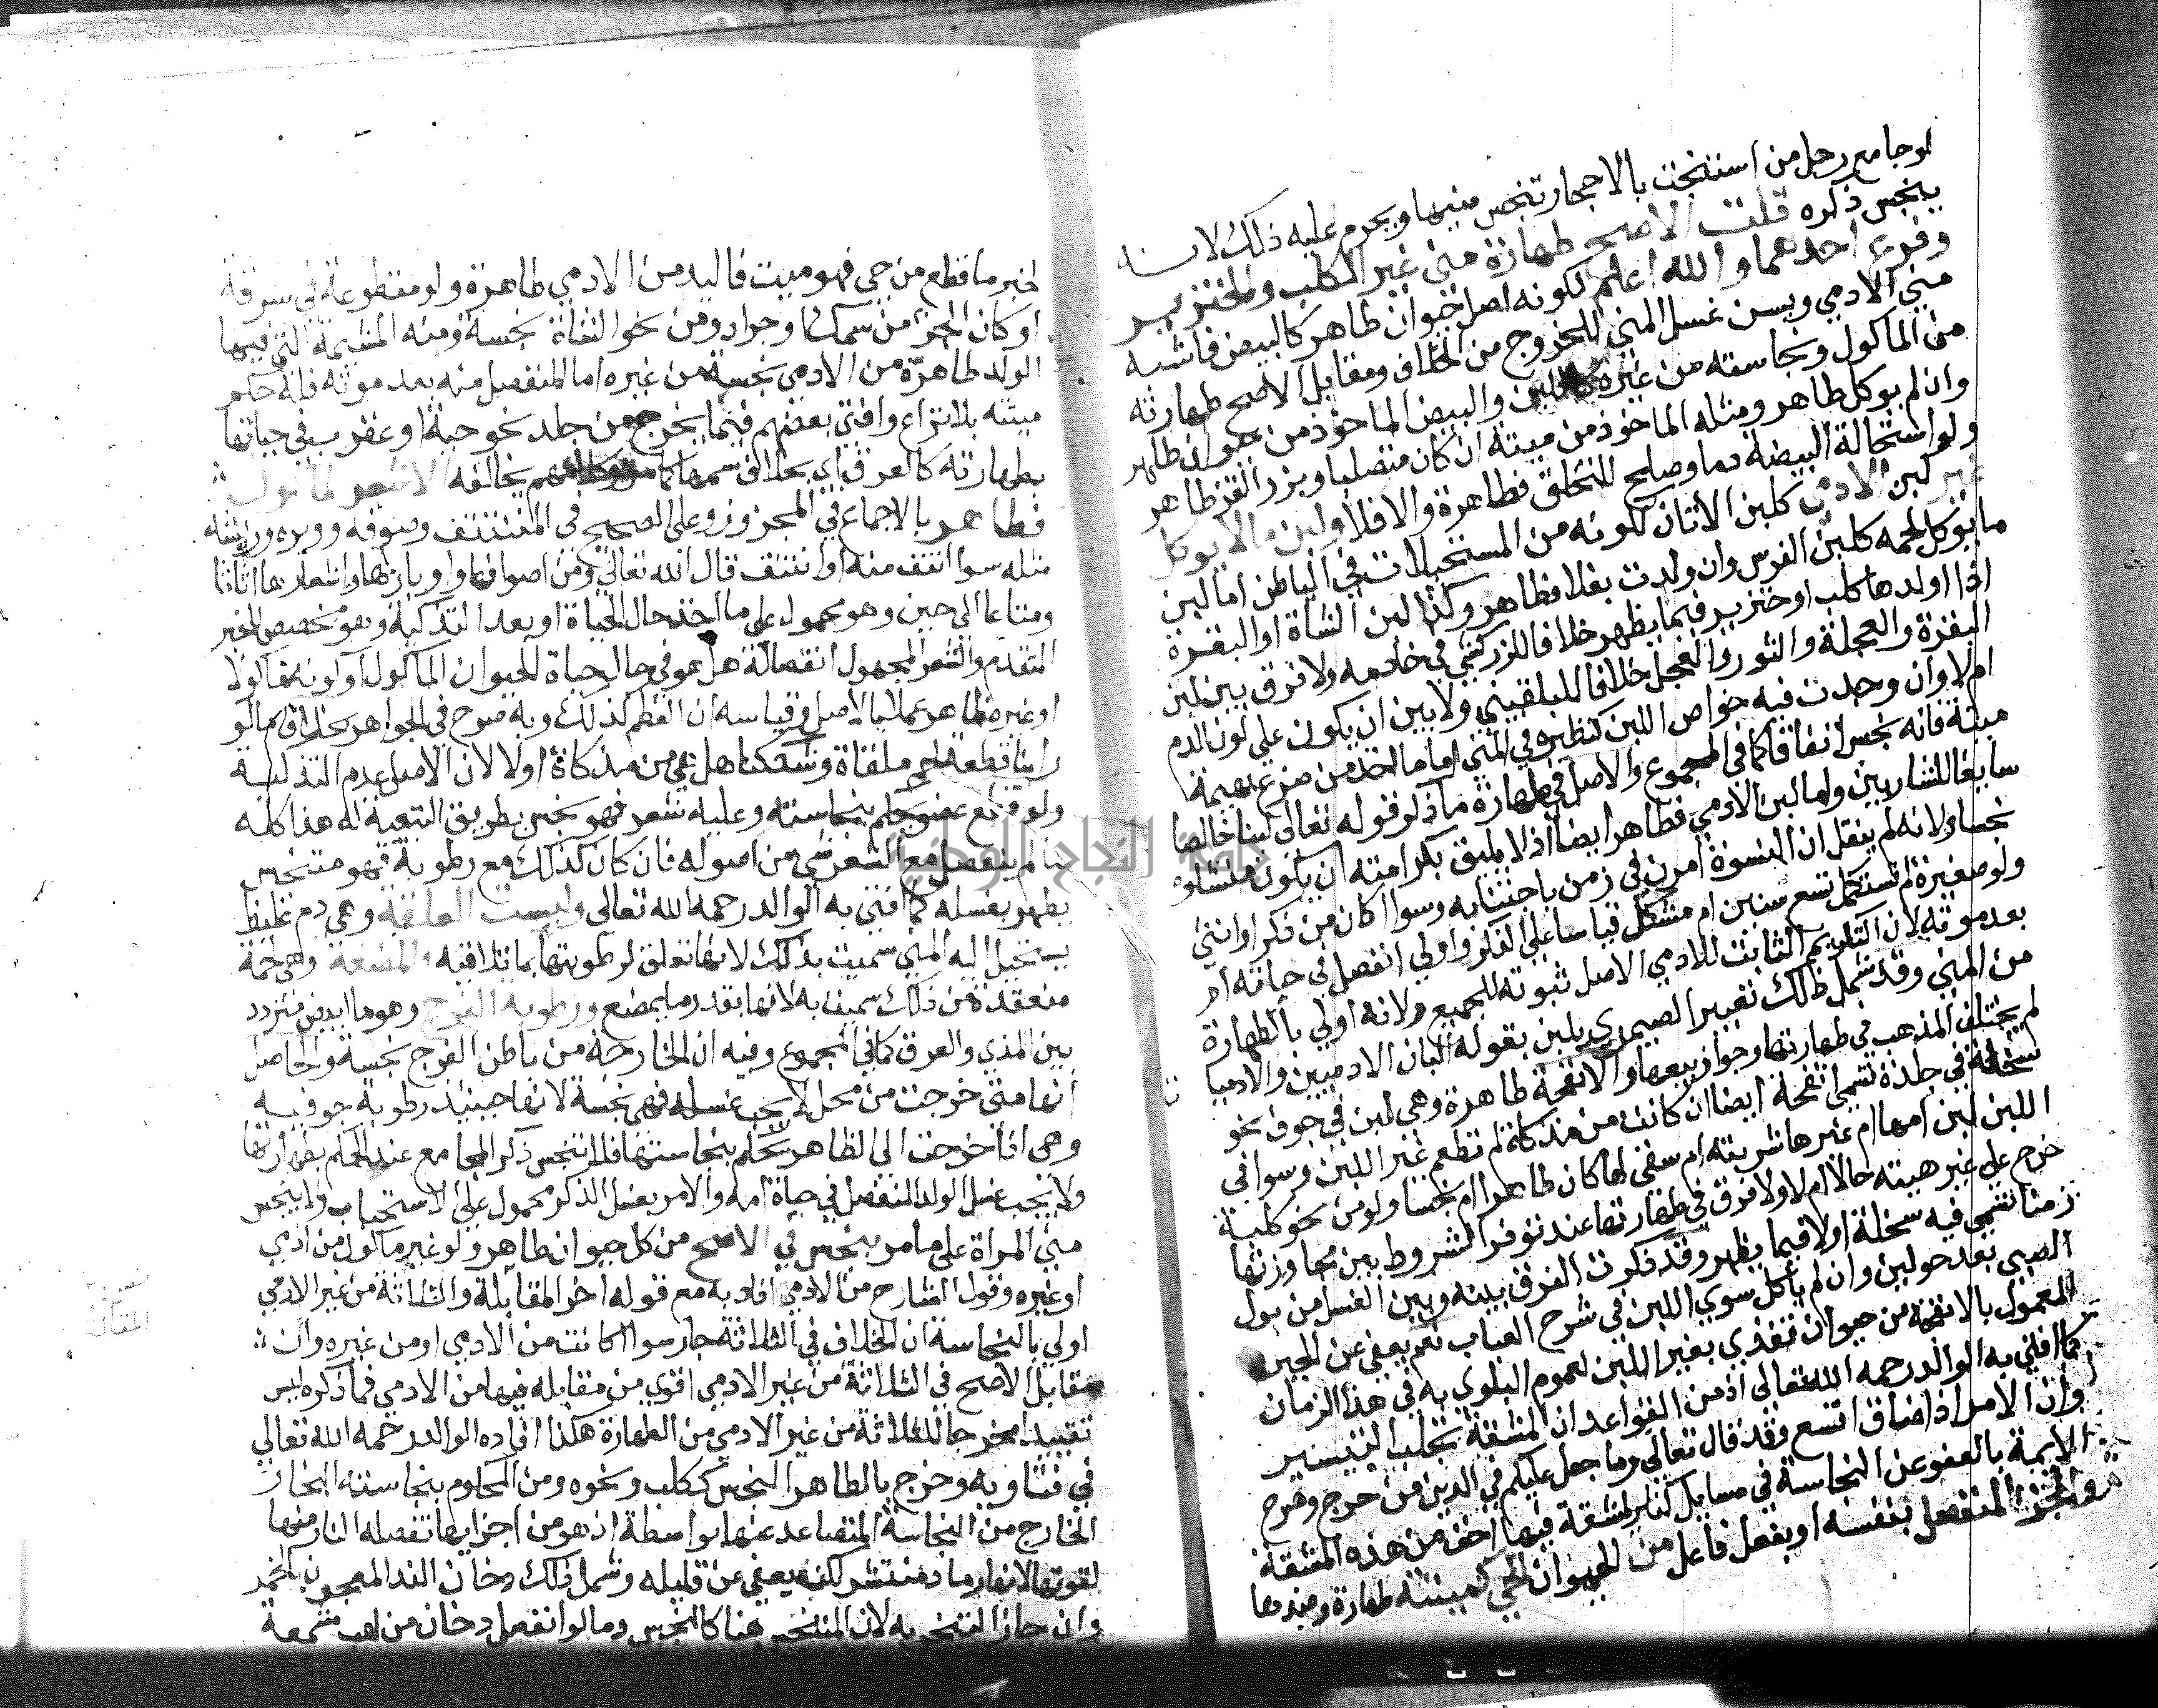 لوجامع رجل من استنجت بالاحجار تنجس منيهما ويحرم عليه ذلك لانه
ينجس ذكره قلت الاصح طهارة مني غير الكلب والخنزير
وفرع احدهما والله اعلم لكونه اصل حيوان طاهر كالبيض فاشبه
مني الادمي ويسن غسل المني للخروج من الخلاف ومقابل الاصح طهارته
من الماكول ونجاسته من غيره كاللبن والبيض الماخوذ من حيوان طاهر
وان لم يوكل طاهر ومثله الماخوذ من ميتة ان كان متصلبا وبزر القز طاهر
ولو استحالة البيضة دما وصلح للتخلق فطاهرة والا فلا ولبن مالا يوكل
غير لبن الادمي كلبن الاتان لكونه من المستحيلات في الباطن اما لبن
ما يوكل لحمه كلبن الفرس وان ولدت بغلا فطاهر وكذا لبن الشاة او البقرة
اذا اولدها كلب او خنزير فيما يظهر خلافا للزركشي في خادمه ولا فرق بين لبن
البقرة والعجلة والثور والعجل خلافا للبلقيني ولا بين ان يكون علي لون الدم
ام لا وان وجدت فيه خواص اللبن كنظيره في المني اما ما اخذ من ضرع بهيمة
ميتة فانه نجس اتفاقا كما في المجموع والاصل في طهارة ما ذكر قوله تعالى لبنا خالصا
سايغا للشاربين واما لبن الادمي فطاهر ايضا اذ لا يليق بكرامته ان يكون منشاوه
نجسا ولانه لم ينقل ان النسوة امرن في زمن باجتنابه وسوا اكان من ذكر او انثي
ولو صغيرة لم تستكمل تسع سنين ام مشكل قياسا علي الذكر واولي انفصل في حياته ام
بعد موته لان التكريم الثابت للادمي الاصل ثبوته للجميع ولانه اولي بالطهارة
من المني وقد شمل ذلك تعبير الصيمري بقوله البان الادميين والادميا
لم يختلف المذهب في طهارتها وجواز بيعها والانفحة طاهرة وهي لبن في جوف نحو
سخلة في جلدة تسمي انفحة ايضا ان كانت من مذكاة لم تطعم غير اللبن وسوا في
اللبن لبن امها ام غيرها شربته ام سقي لها كان طاهرا ام نجسا ولو من نحو كلبة
خرج علي غير هيئته حالا ام لا ولا فرق في طهارتها عند توفر الشروط بين مجاوزتها
زمنا تسمي فيه سخلة او لا فيما يظهر وقد ذكرت الفرق بينه وبين الغسل من بول
الصبي بعد حولين وان لم ياكل سوي اللبن في شرح العباب نعم يعفي عن الجبن
المعمول بالانفحة من حيوان تغذي بغير اللبن لعموم البلوي به في هذا الزمان
كما افتي به الوالد رحمه الله تعالي اذ من القواعد ان المشقة تجلب التيسير
وان الامر اذا ضاق اتسع وقد قال تعالي وما جعل عليكم في الدين من حرج وصرح
الايمة بالعفو عن النجاسة في مسايل كثيرة المشقة فيها اخف من هذه المشقة
والجزء المنفصل بنفسه او بفعل فاعل من الحيوان الحي كميتته طهارة وضدها
لخبر ما قطع من حي فهو ميت فاليد من الادمي طاهرة ولو مقطوعة في سرقة
او كان الجزء من سمك او جراد ومن نحو الشاة نجسة ومنه المشيمة التي فيها
الولد طاهرة من الادمي نجسة من غيره اما المنفصل منه بعد موته فله حكم
ميتته بلا نزاع وافتي بعضهم فيما يخرج من جلد نحو حية او عقرب في حياتها
بطهارته كالعرق اي بخلاف سمها يخالفه الا شعر الماكول
فطاهر بالاجماع في المجزوز وعلى الصحيح في المنتتف وصوفه ووبره وريشه
مثله سوا انتف منه او انتتف قال الله تعالي ومن اصوافها واوبارها واشعارها اثاثا
ومتاعا الى حين وهو محمول على ما اخذ حال الحياة او بعد التذكية وهو مخصص للخبر
المتقدم والشعر المجهول انفصاله هل هو في حال حياة الحيوان الماكول او لكونه ماكولا
او غيره طاهر عملا بالاصل وقياسه ان العظم كذلك وبه صرح في الجواهر بخلاف ما لو
راينا قطعة لحم ملقاة وشككنا هل هي من مذكاة او لا لان الاصل عدم التذكية
ولو قطع عضو يحكم بنجاسته وعليه شعر فهو نجس بطريق التبعية له هذا كله
ما لم ينفصل مع الشعر شي من اصوله فان كان كذلك مع رطوبة فهو متنجس
يطهر بغسله كما افتي به الوالد رحمه الله تعالى وليست العلقة وهي دم غليظ
يستحيل اليه المني سميت بذلك لانها تعلق لرطوبتها بما تلاقيه والمضغة وهي لحمة
منعقدة من ذلك سميت به لانها بقدر ما يمضغ ورطوبة الفرج وهو ما ابيض متردد
بين المذي والعرق كما في المجموع وفيه ان الخارجة من باطن الفرج نجسة والحاصل
انها متى خرجت من محل لا يجب غسله فهي نجسة لانها حينئذ رطوبة جوفيه
وهي اذا خرجت الى الظاهر يحكم بنجاستها فلا تنجس ذكر المجامع عند الحكم بطهارتها
ولا يجب غسل الولد المنفصل في حياة امه والامر بغسل الذكر محمول علي الاستحباب ولا ينجس
مني المراة على ما مر بنجس في الاصح من كل حيوان طاهر ولو غير ماكول من ادمي
او غيره وقول الشارح من الادمي افاد به مع قوله اخر المقابلة والثلاثة من غير الادمي
اولي بالنجاسة ان الخلاف في الثلاثة جار سوا اكانت من الادمي او من غيره وان
مقابل الاصح في الثلاثة من غير الادمي اقوي من مقابله فيها من الادمي فما ذكره ليس
تقييدا مخرجا للثلاثة من غير الادمي من الطهارة هكذا افاده الوالد رحمه الله تعالي
في فتاويه وخرج بالطاهر النجس ككلب ونحوه ومن المحكوم بنجاسته البخار
الخارج من النجاسة المتصاعد عنها بواسطة اذ هو من اجزايها تفصله النار منها
لقوتها لانها رماد منتشر لكنه يعفى عن قليله وشمل ذلك دخان الند المعجون بالخمر
وان جاز التبخر به لان المتنجس هنا كالنجس وما لو انفصل دخان من لهب شمعة